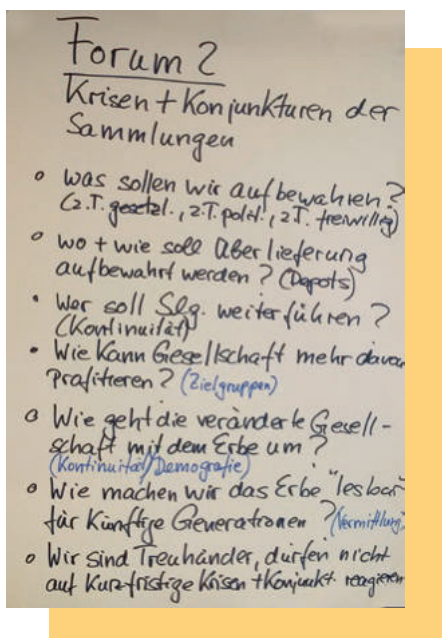 Forum 2
Krisen + Konjunkturen der
Sammlungen
o was sollen wir aufbewahren?
(z.T. gesetzl., z.T. polit., z.T. freiwillig)
o wo + wie soll Überlieferung
aufbewahrt werden? (Depots)
• Wer soll Slg. weiterführen?
(Kontinuität)
• Wie kann Gesellschaft mehr davon
profitieren? (Zielgruppen)
o Wie geht die veränderte Gesell-
schaft mit dem Erbe um?
(Kontinuität/Demografie)
o Wie machen wir das Erbe "lesbar"
für künftige Generationen? (Vermittlung)
o Wir sind Treuhänder, dürfen nicht
auf kurzfristige Krisen + Konjunkt. reagieren